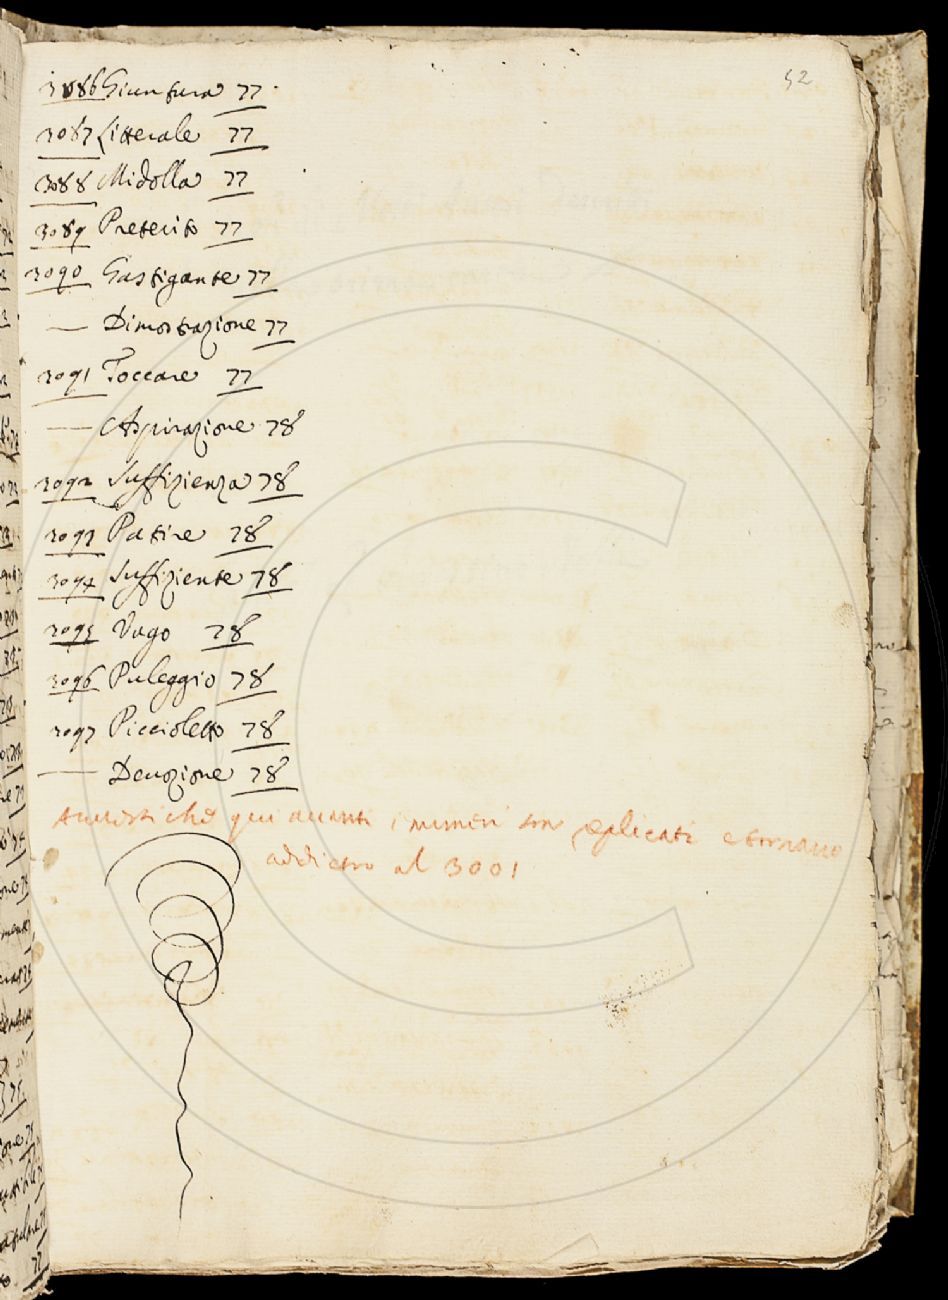 52
3086 Giuntura 77
3087 Litterale 77
3088 Midolla 77
3089 Preterito 77
3090 Gastigante 77
— Dimostrazione 77
3091 Toccare 77
— Aspirazione 78
3092 Suffizienza 78
3093 Patire 78
3094 Suffiziente 78
3095 Vago 78
3096 Puleggio 78
3097 Piccioletto 78
— Devozione 78
che qui auanti i numeri son replicati e tornano
addietro al 3001